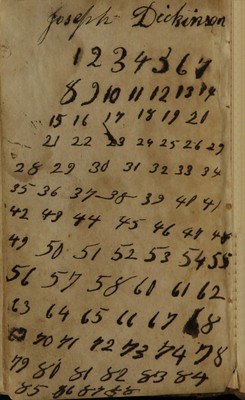 Joseph Dickinson
1 2 3 4 5 6 7
8 9 10 11 12 13 14
15 16 17 18 19 21
21 22 23 24 25 26 29
28 29 30 31 32 33 34
35 36 37 38 39 41 41
42 43 44 45 46 47 48
49 50 51 52 53 54 55
56 57 58 60 61 62
63 64 65 66 67 68
69 70 71 72 73 74 78
79 80 81 82 83 84
85 86 87 88